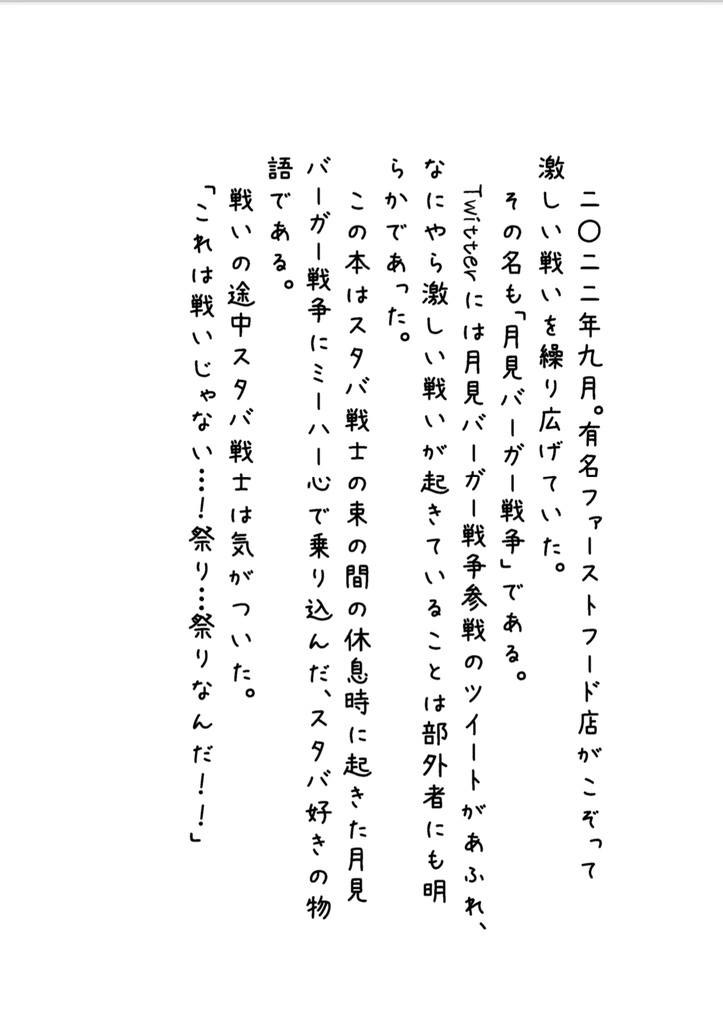 二〇二二年九月。有名ファーストフード店がこぞって
激しい戦いを繰り広げていた。
その名も「月見バーガー戦争」である。
Twitterには月見バーガー戦争参戦のツイートがあふれ、
なにやら激しい戦いが起きていることは部外者にも明
らかであった。
この本はスタバ戦士の束の間の休息時に起きた月見
バーガー戦争にミーハー心で乗り込んだ、スタバ好きの物
語である。
戦いの途中スタバ戦士は気がついた。
「これは戦いじゃない…！祭り…祭りなんだ！！」